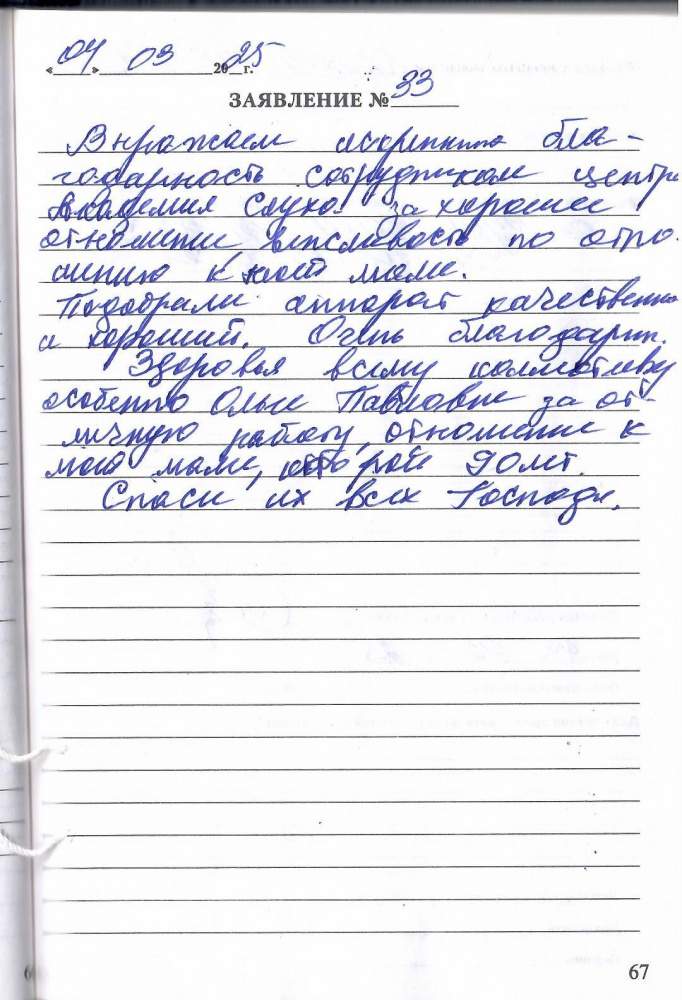 «04» 03 2025 г.
ЗАЯВЛЕНИЕ № 33
Выражаем искреннюю бла-
годарность сотрудникам центра
Академия Слуха за хорошее
отношение, вежливость по отно
шению к моей маме.
Подобрали аппарат качественно
и хороший. Очень благодарны.
Здоровья всему коллективу
особенно Ольге Павловне за от-
личную работу, отношение к
моей маме, которой 90 лет.
Спаси их всех Господи.
67